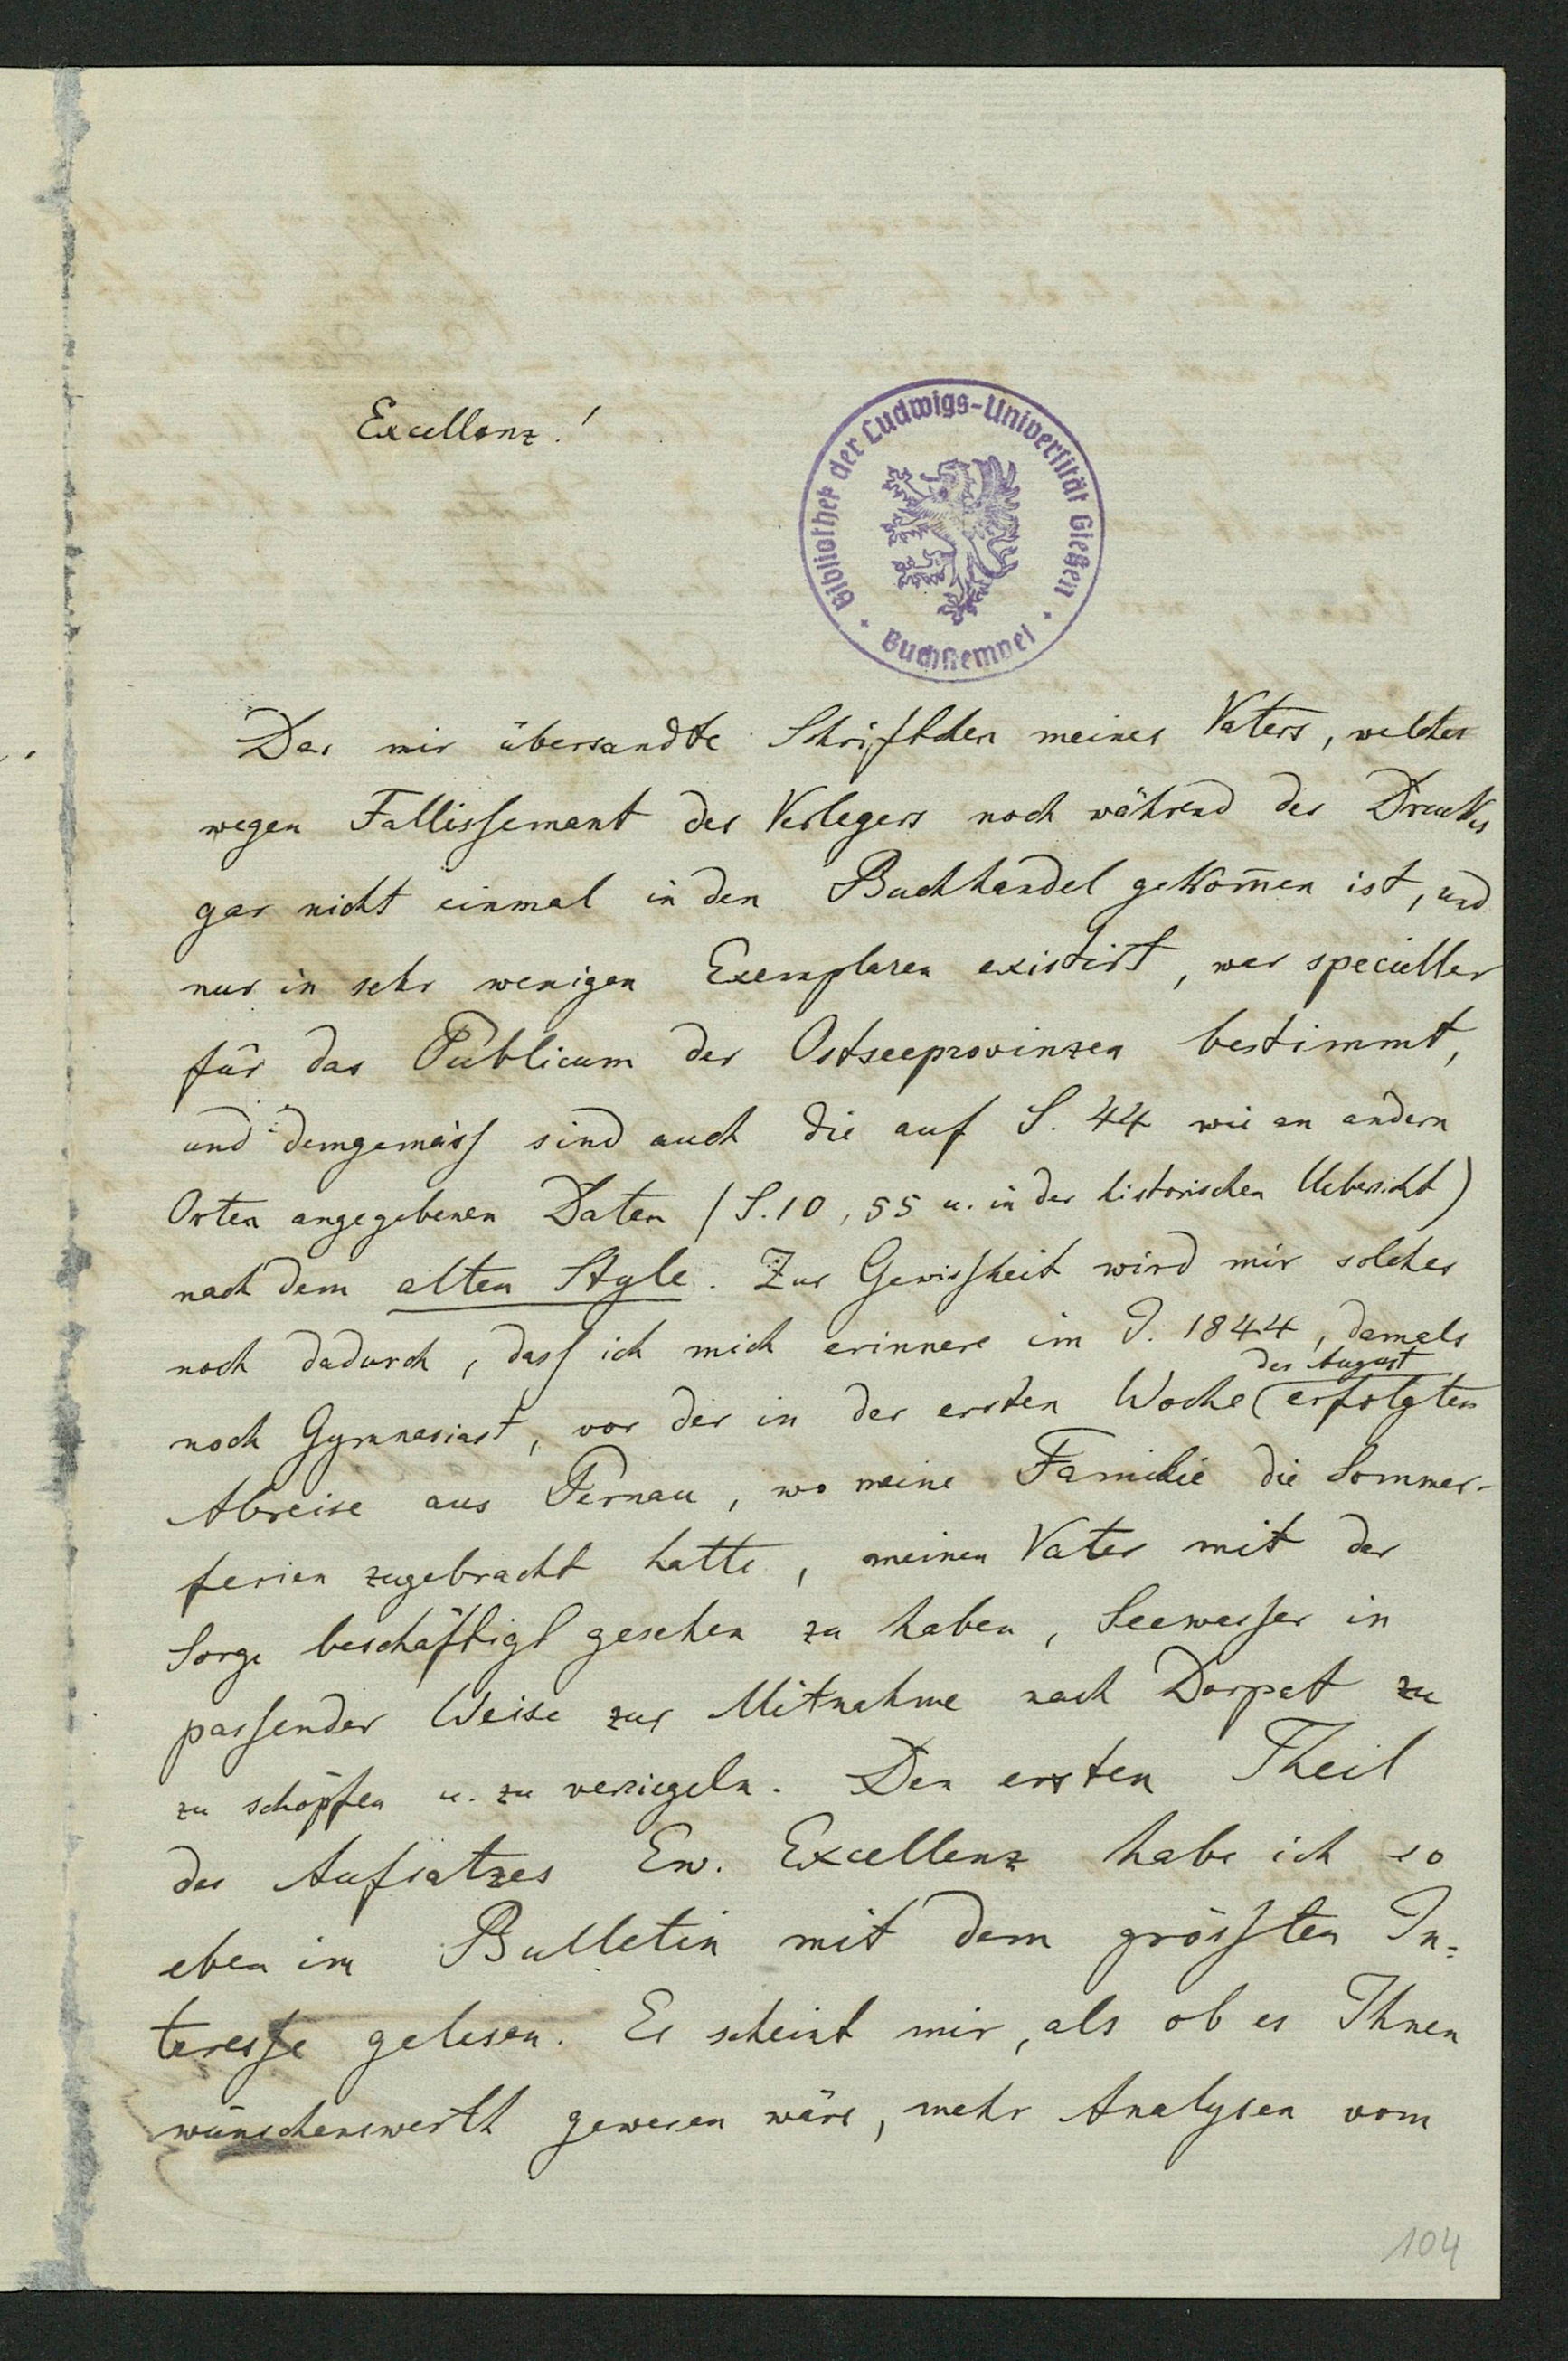 Excellenz!
Bibliothek der Ludwigs-Universität Gießen
Buchstempel
Das mir übersandte Schriftchen meines Vaters, welches
wegen Fallissement des Verlegers noch während des Druckes
gar nicht einmal in den Buchhandel gekom̄en ist, und
nur in sehr wenigen Exemplaren existirt, war specieller
für das Publicum der Ostseeprovinzen bestimmt,
und demgemäss sind auch die auf S. 44 wie an andern
Orten angegebenen Daten (S. 10, 55 u. in der historischen Uebersicht)
nach dem alten Style. Zur Gewissheit wird mir solches
noch dadurch, dass ich mich erinnere im J. 1844, damals
des August
noch Gymnasiast, vor der in der ersten Woche erfolgten
Abreise aus Pernau, wo meine Familie die Sommer-
ferien zugebracht hatte, meinen Vater mit der
Sorge beschäftigt gesehen zu haben, Seewasser in
passender Weise zur Mitnahme nach Dorpat zu
zu schöpfen u. zu versiegeln. Den ersten Theil
des Aufsatzes Ew. Excellenz habe ich so
eben im Bulletin mit dem grössten In=
teresse gelesen. Es scheint mir, als ob es Ihnen
wünschenswerth gewesen wäre, mehr Analysen vom
104